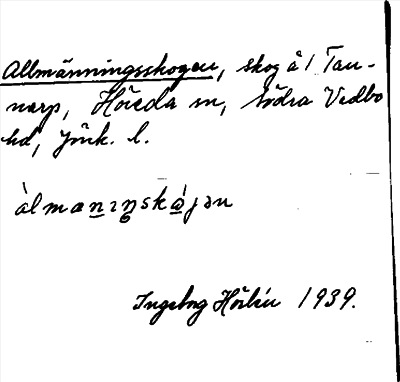 Allmänningsskogen, skog å 1 Tau-
narp, Höreda sn, Södra Vedbo
hd, Jönk. l.
àlmanɪŋskǻjən
Ingeborg 1939.